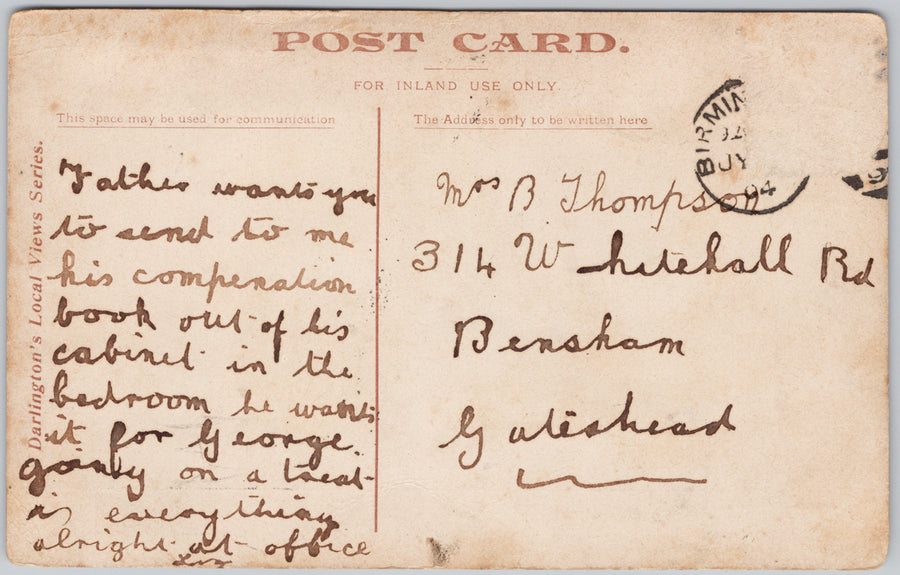 POST CARD.
FOR INLAND USE ONLY.
This space may be used for communication
The Address only to be written here
Darlington's Local Views Series.
BIRMIN
JY
04
Father wants you
to send to me
his compenation
book out of his
cabinet in the
bedroom he wants
it for George
going on a treat
is everything
alright at office
Mrs B Thompson
314 Whitehall Rd
Bensham
Gateshead